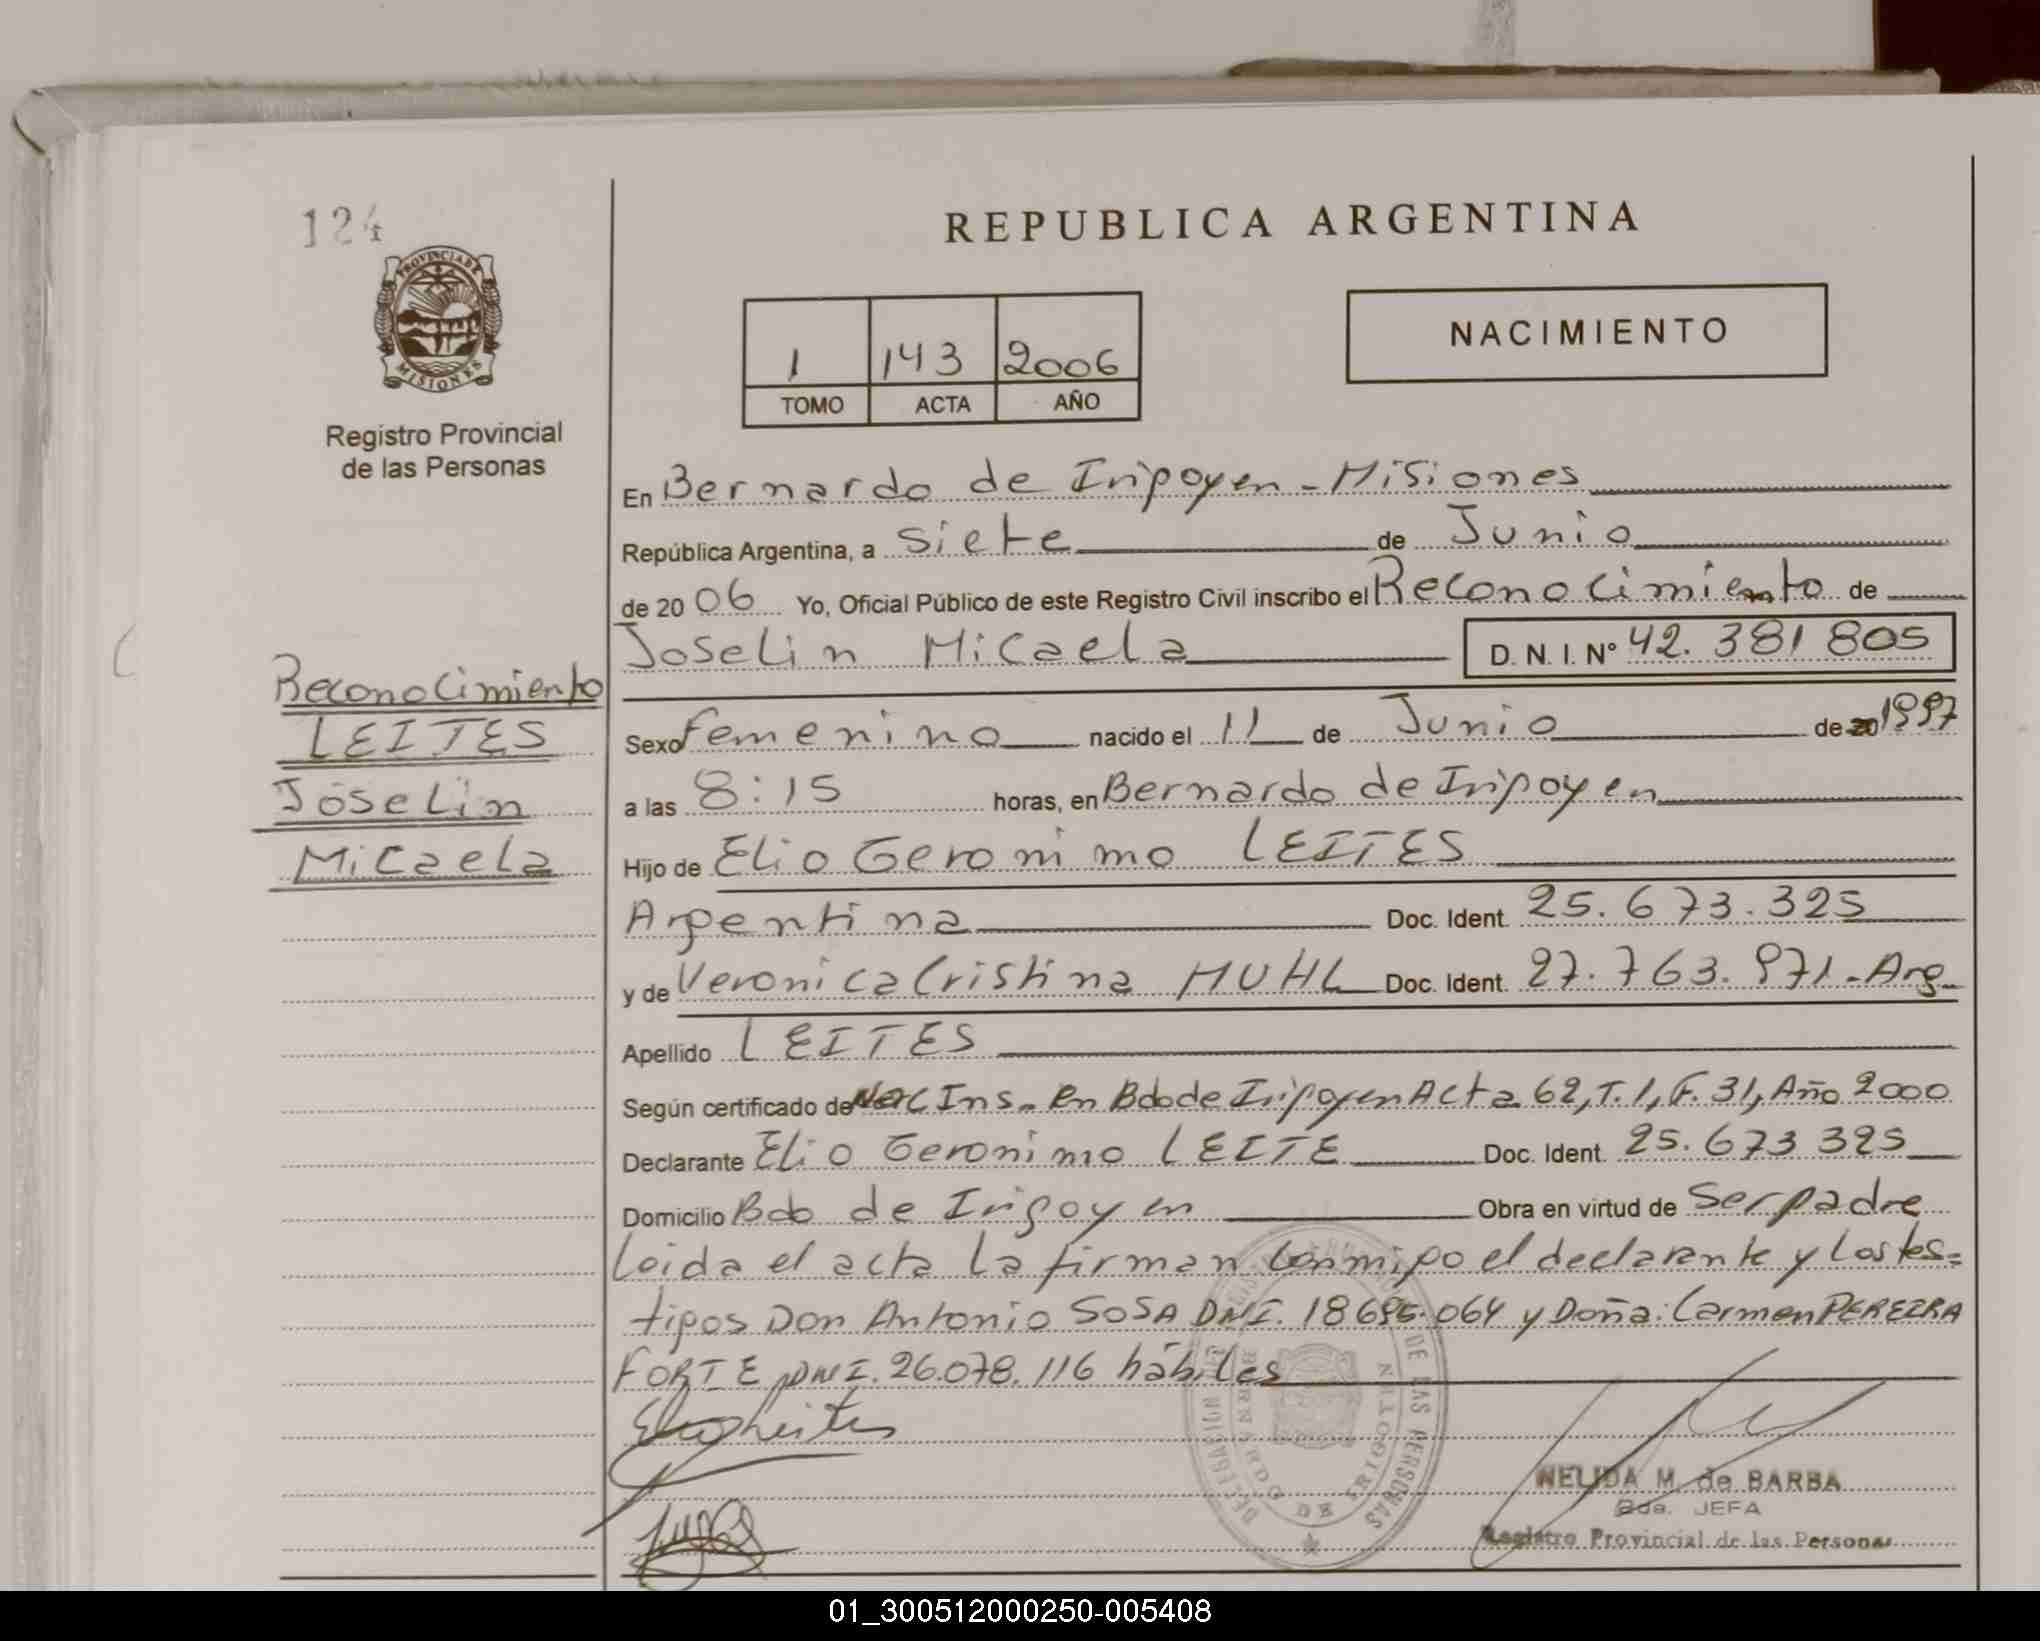 124
PROVINCIA DE
MISIONES
Registro Provincial
de las Personas
REPUBLICA ARGENTINA
1 143 2006
TOMO ACTA AÑO
NACIMIENTO
En Bernardo de Iripoyen - Misiones
República Argentina, a siete de Junio
de 2006 Yo, Oficial Público de este Registro Civil inscribo el Reconocimiento de
Joselin Micaela D. N. I. Nº 42. 381 805
Reconocimiento
LEITES
Joselin
Micaela
Sexo femenino nacido el 11 de Junio de 20 1997
a las 8:15 horas, en Bernardo de Iripoyen
Hijo de Elio Geronimo LEITES
Argentina Doc. Ident. 25.673.325
y de Veronica Cristina MUHL Doc. Ident. 27.763.971 - Arg
Apellido LEITES
Según certificado de Nac Ins. en Bdo de Iripoyen Acta 62, T.1, F. 31, Año 2000
Declarante Elio Geronimo LEITE Doc. Ident. 25.673 325
Domicilio Bdo de Irigoyen Obra en virtud de Ser padre
Leida el acta la firman conmigo el declarante y los tes=
tigos Don Antonio SOSA DNI. 18 064 y Doña: Carmen PEREIRA
FORTE DNI. 26.078.116 hábiles
Elio Leites
DELEGACION DE LAS PERSONAS
BERNARDO DE IRIGOYEN
NELIDA M. de BARBA
2da. JEFA
Registro Provincial de las Personas
01_300512000250-005408